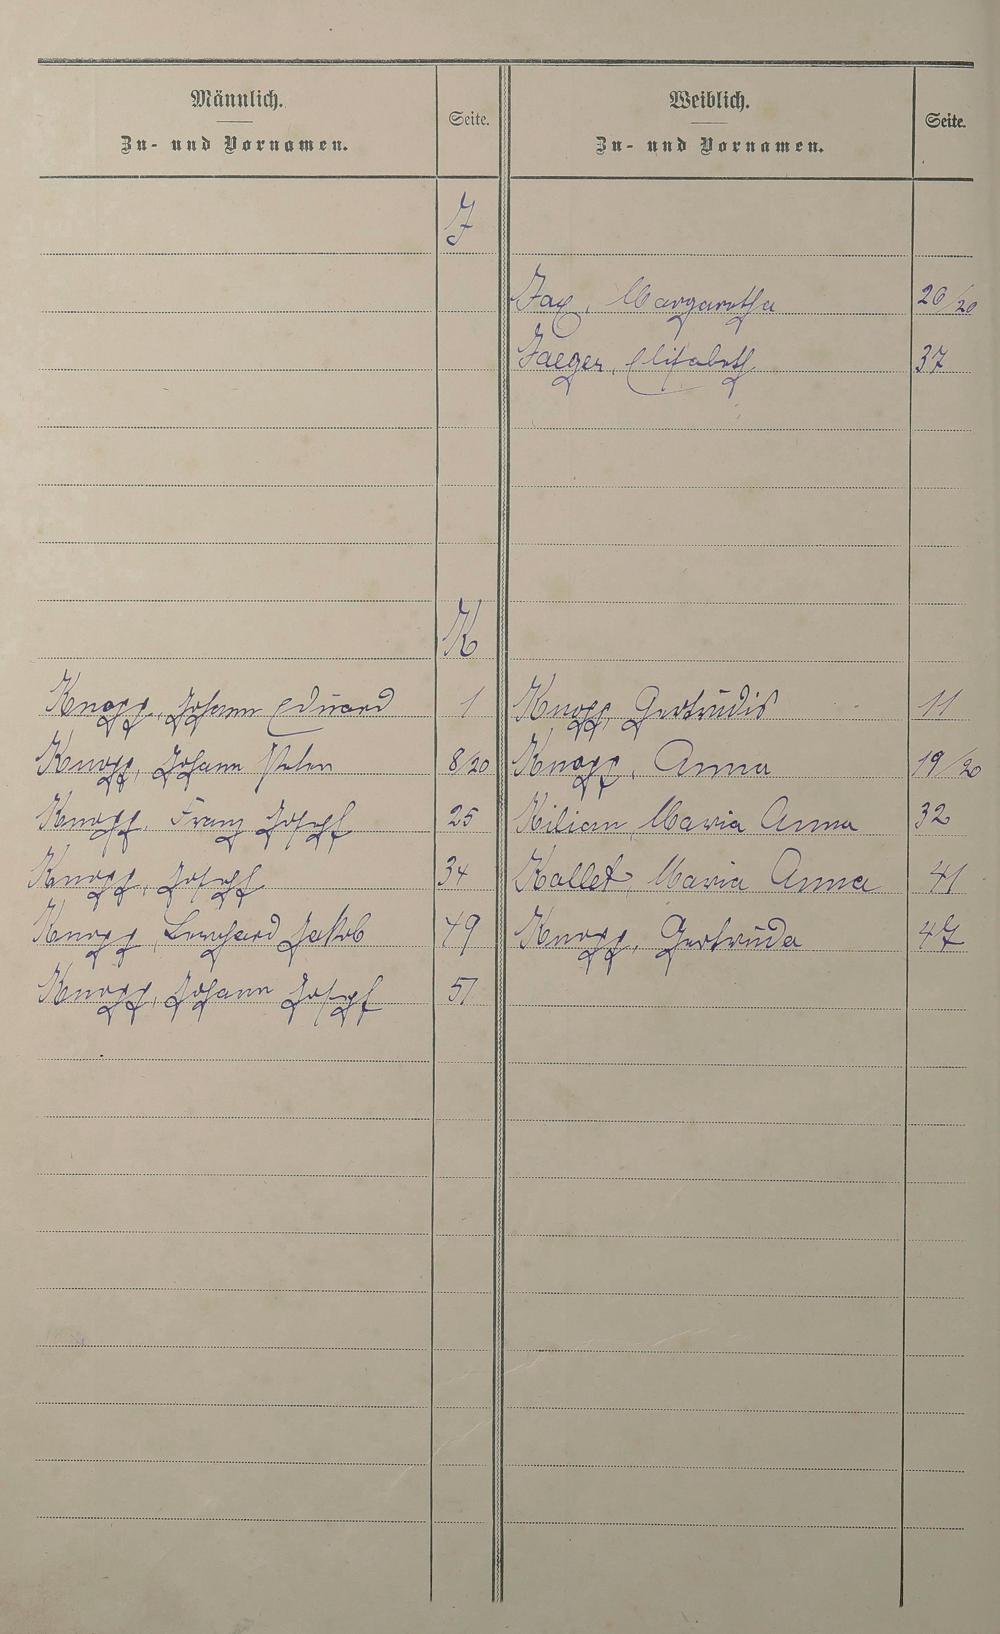 Männlich.
Zu- und Vornamen.
Seite.
Weiblich.
Zu- und Vornamen.
Seite.
J
Jax, Margaretha 26/20
Jaeger, Elisabeth 37
K
Knopp, Johann Eduard 1 Knopp, Gertrudis 11
Knopp, Johann Peter 8/20 Knopp, Anna 19/20
Knopp, Franz Joseph 25 Kilian, Maria Anna 32
Knopp, Joseph 34 Kollet, Maria Anna 41
Knopp, Bernhard Jakob 49 Knopp, Gertruda 47
Knopp, Johann Joseph 51